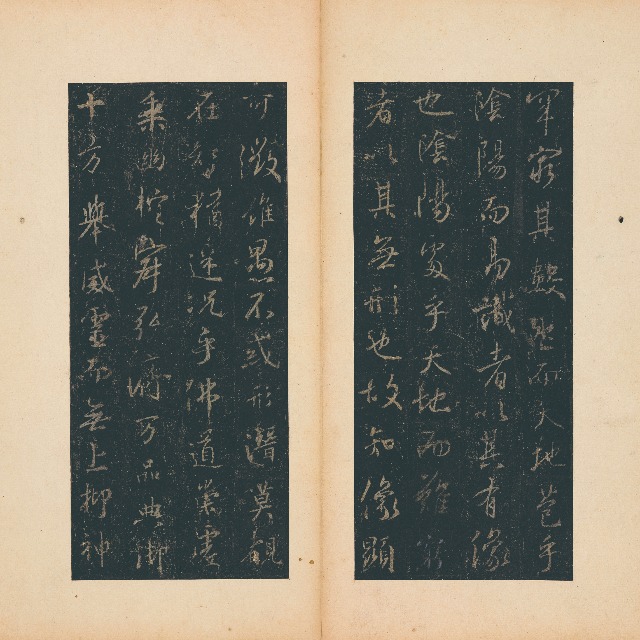 罕窮其數然而天地苞乎
陰陽而易識者以其有像
也陰陽處乎天地而難窮
者以其無形也故知像顯
可徵雖愚不惑形潛莫覩
在智猶迷況乎佛道崇虛
乘幽控寂弘濟万品典御
十方舉威靈而無上抑神